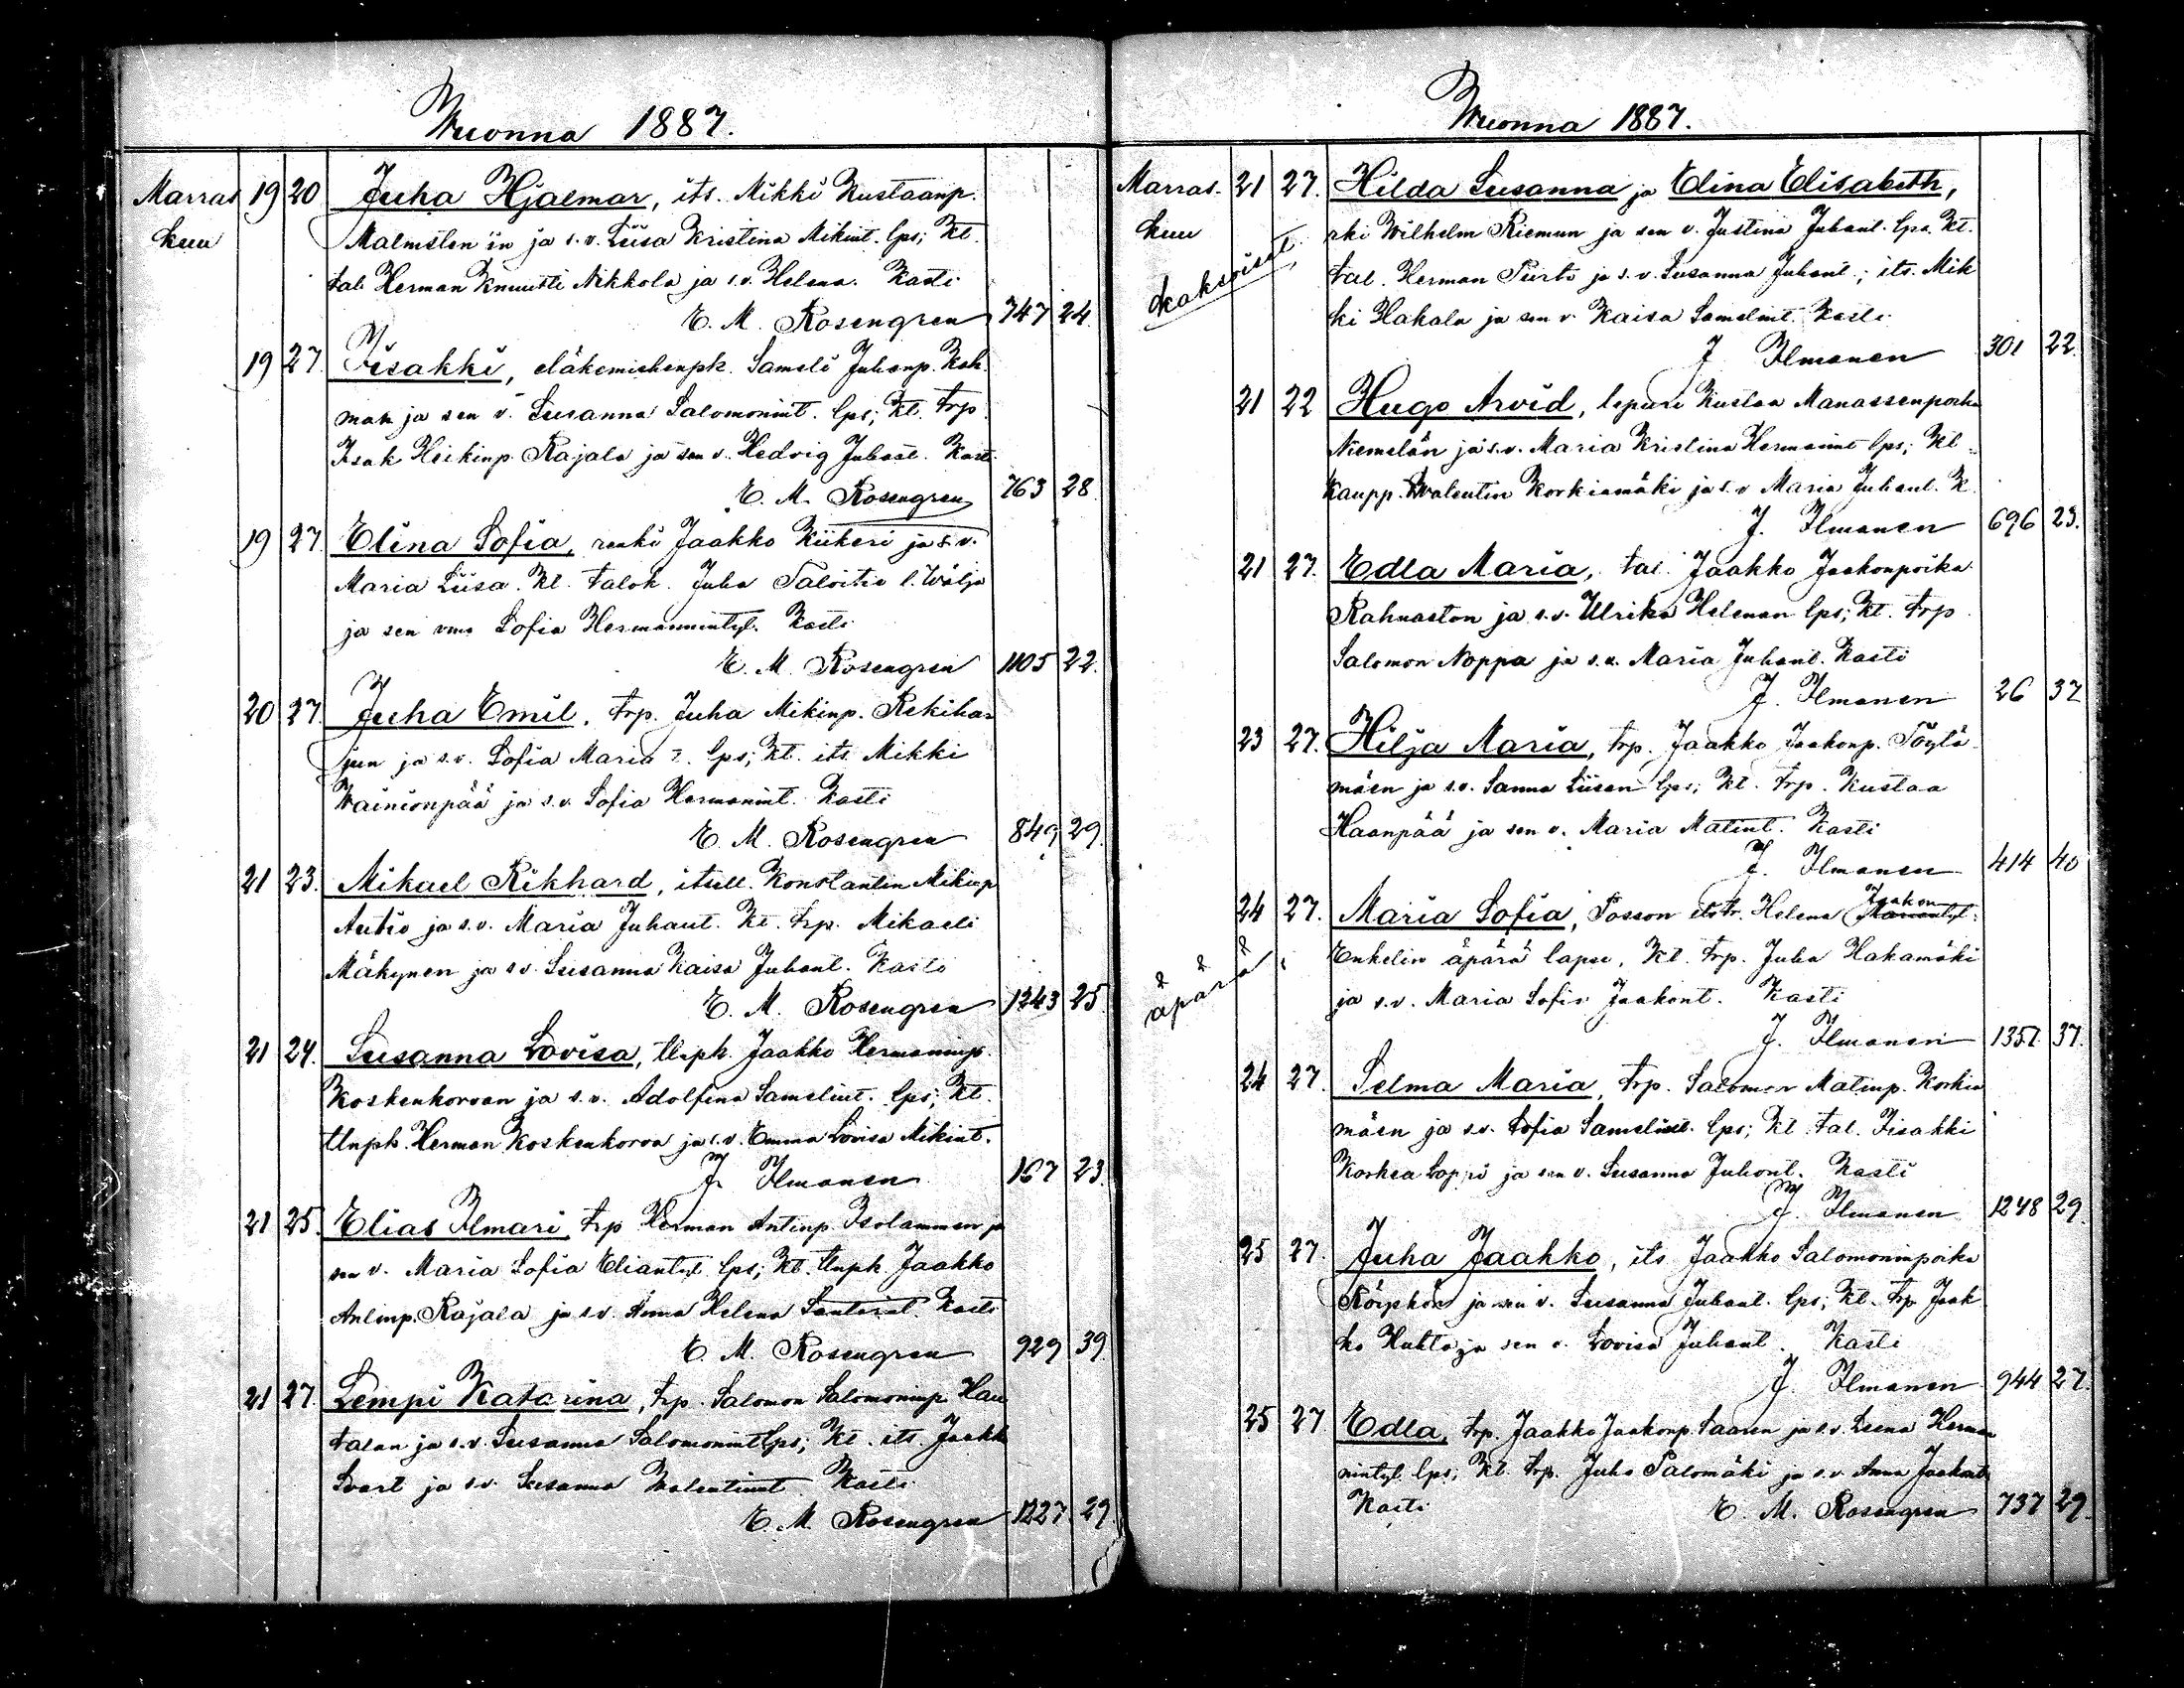 Wuonna 1887.
Marras 19 20 Juha Hjalmar, its. Mikki Kustaanp.
kuu Malmsten in ja s.v. Liisa Kristina Mikint. lps; Kt.
tal. Herman Knuutti Nikkola ja s.v. Helena. Kasti
E. M. Rosengren 747 24.
19 27. Iisakki, eläkemiehenpk. Sameli Juhanp. Kah
man ja sen v. Susanna Salomonint. lps; Kt. trp.
Isak Heikinp. Rajala ja sen v. Hedvig Juhant. Kasti
E. M. Rosengren 763 28.
19 27. Elina Sofia, renki Jaakko Kiikeri ja s.v.
Maria Liisa. Kt. talok. Juha Taloitis l. Wälja
ja sen vmo Sofia Hermannintyt. Kasti
E. M. Rosengren 1105 22.
20 27. Juha Emil, trp. Juha Mikinp. Rekihar
jun ja s.v. Sofia Maria lps; Kt. its. Mikki
Wainionpää ja s.v. Sofia Hermanint. Kasti
E. M. Rosengren 849 29.
21 23. Mikael Rikhard, itsell. Konstantin Mikinp
Autio ja s.v. Maria Juhant. Kt. trp. Mikaeli
Mäkynen ja s.v. Susanna Kaisa Juhant. Kasti
E. M. Rosengren 1243 25.
21 24. Susanna Lovisa, tlnph. Jaakko Hermaninp.
Koskenkorvan ja s.v. Adolfina Samelint. lps; Kt.
tlnph. Herman Koskenkorva ja s.v. Emma Lovisa Mikint.
J. Ilmanen 167 23.
21 25. Elias Ilmari, trp Herman Antinp. Isolammen ja
sen v. Maria Sofia Eliantyt. lps; Kt. tlnph. Jaakko
Antinp. Rajala ja s.v. Anna Helena Kasti
E. M. Rosengren 929 39.
21 27. Lempi Katarina, trp. Salomon Salomoninp. Hau
talan ja s.v. Susanna Salomonint lps; Kt. its. Jaakk
Svart ja s.v. Susanna Walentinint. Kasti
E. M. Rosengren 1227 29.
Wuonna 1887.
Marras- 21 27. Hilda Susanna ja Elina Elisabeth,
kuu rki Wilhelm Riemun ja sen v. Justina Juhant. lps. Kt.
kaksoiset tal. Herman Piirto ja s.v. Susanna Juhant.; its. Mik
ki Hakala ja sen v. Kaisa Samelint. Kasti
J. Ilmanen 301 22.
21 22 Hugo Arvid, lspuri Kustaa Manassenpoika
Niemelän ja s.v. Maria Kristina Hermanint lps; Kt.
kaupp. Walentin Korkiamäki ja s.v. Maria Juhant. K.
J. Ilmanen 696 23.
21 27. Edla Maria, tal. Jaakko Jaakonpoika
Rahnaston ja s.v. Ulrika Helenan lps; Kt. trp
Salomon Noppa ja s.v. Maria Juhant. Kasti
J. Ilmanen 26 37
23 27. Hilja Maria, trp. Jaakko Jaakonp. Töylä
mäen ja s.v. Sanna Liisan lps; Kt. trp. Kustaa
Haanpää ja sen v. Maria Matint. Kasti
J. Ilmanen 414 40
24 27. Maria Sofia, Tosson itstr. Helena Jaakon
äpärä Enkelin äpärä lapse, Kt. trp. Juha Hakamäki
ja s.v. Maria Sofia Jaakont. Kasti
J. Ilmanen 1351 37.
24 27. Selma Maria, trp. Salomon Matinp. Korkia
mäen ja s.v. Sofia Samelint. lps; Kt. tal. Iisakki
Korkea Loppi ja sen v. Susanna Juhant. Kasti
J. Ilmanen 1248 29.
25 27. Juha Jaakko, its Jaakko Salomoninpoika
ja sen v. Susanna Juhant. lps; Kt. trp Jaak
ko Huhta ja sen v. Lovisa Juhant. Kasti
J. Ilmanen 944 27.
25 27 Edla, trp. Jaakko Jaakonp. Saaren ja s.v. Leena Herman
nintyt. lps; Kt. trp. Juho Palomäki ja s.v. Anna Jaakont.
Kasti E. M. Rosengren 737 29.